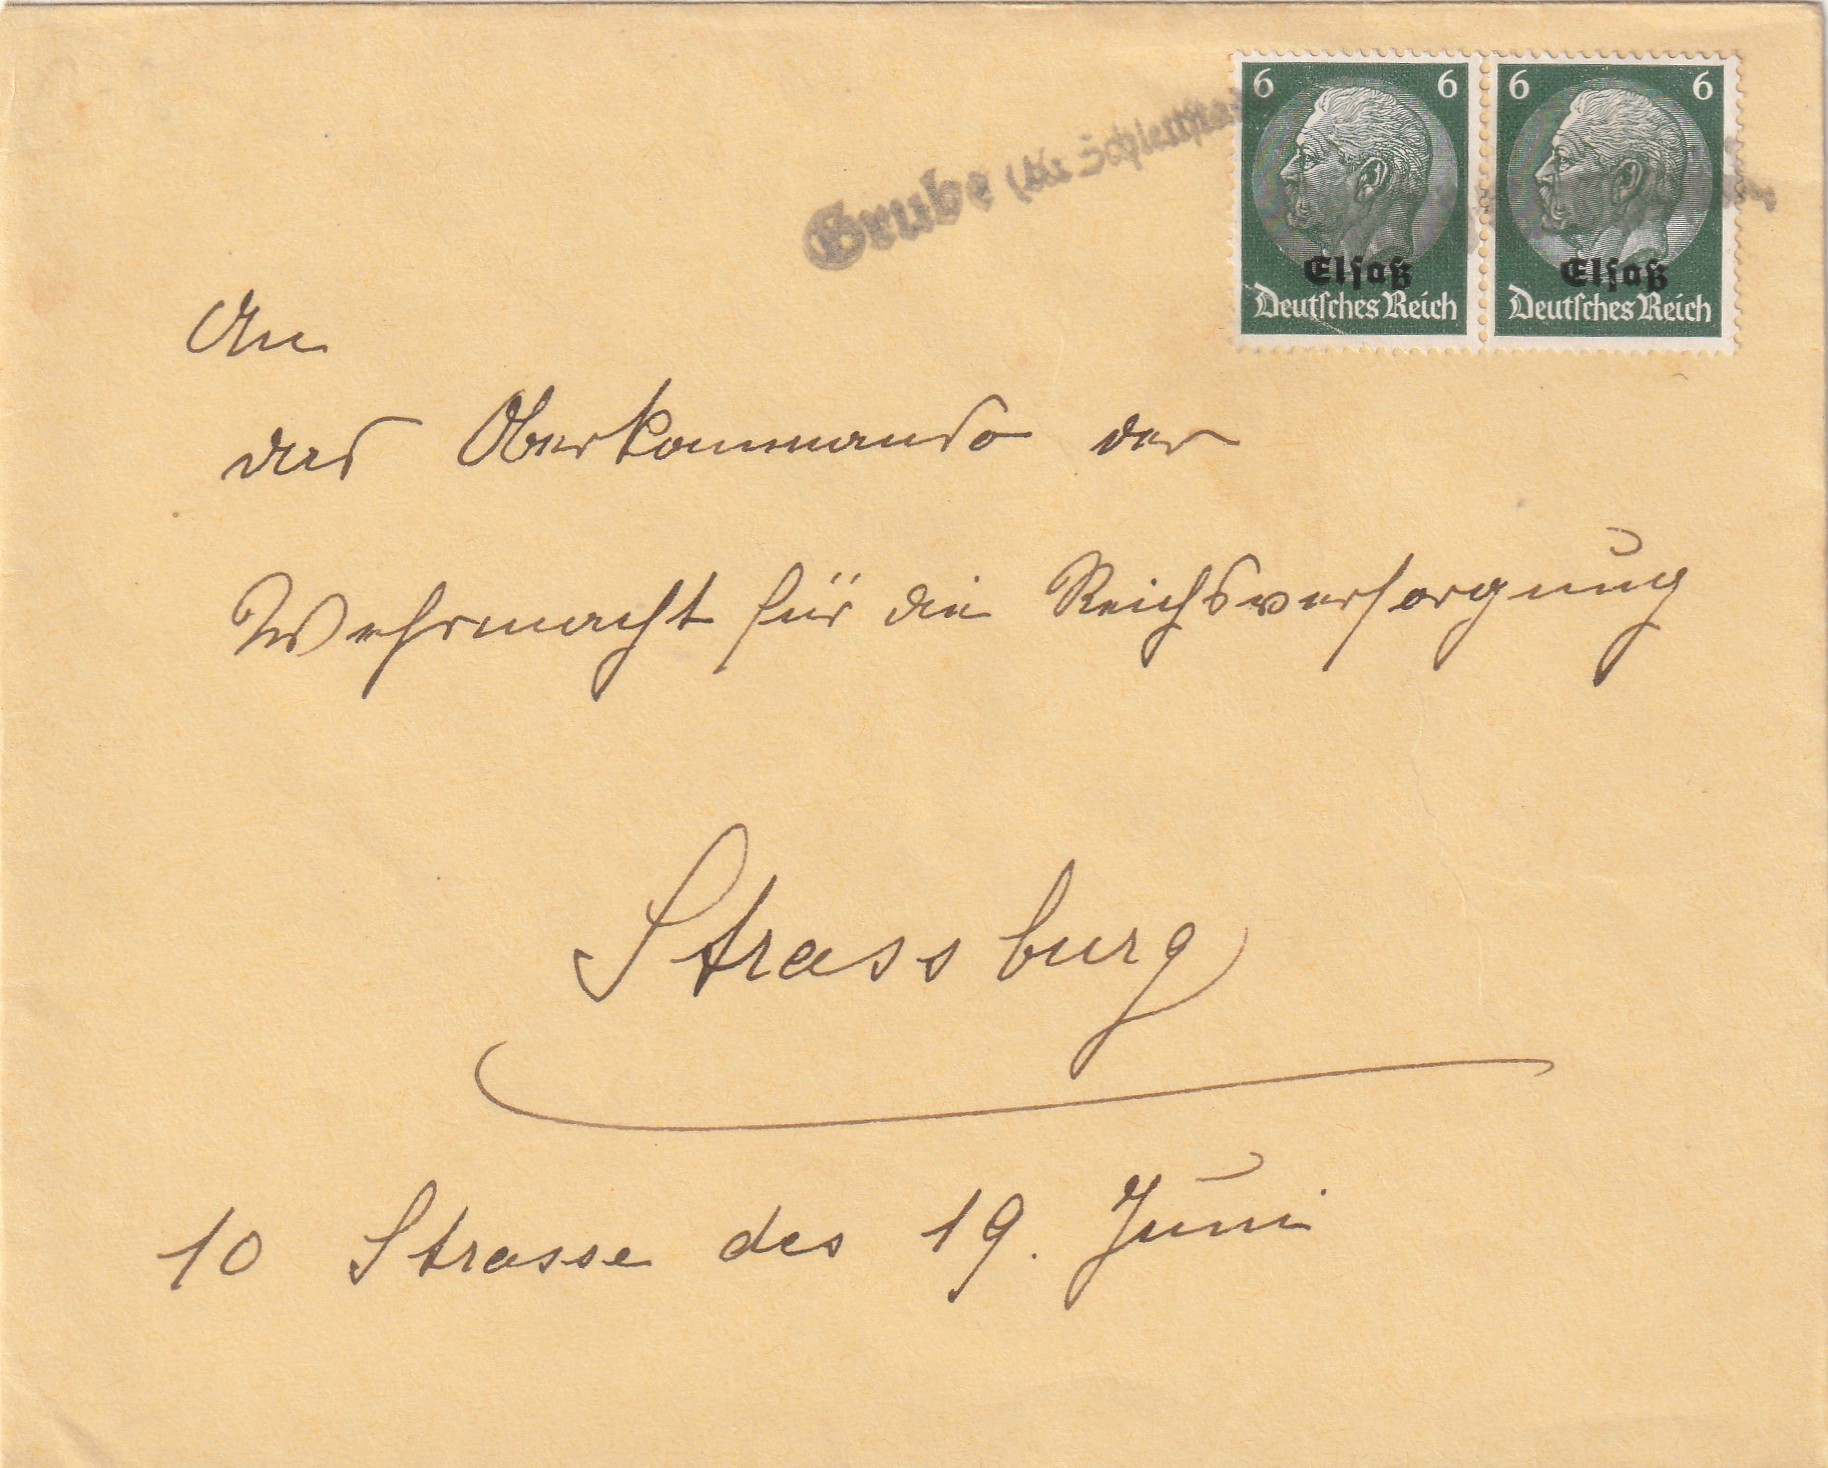 6 6 6 6
Grube (Kr. Schlettstadt
Elsaß Elsaß
Deutsches Reich Deutsches Reich
An
das Oberkommando der
Wehrmacht für die Reichsversorgung
Strassburg
10 Strasse des 19. Juni